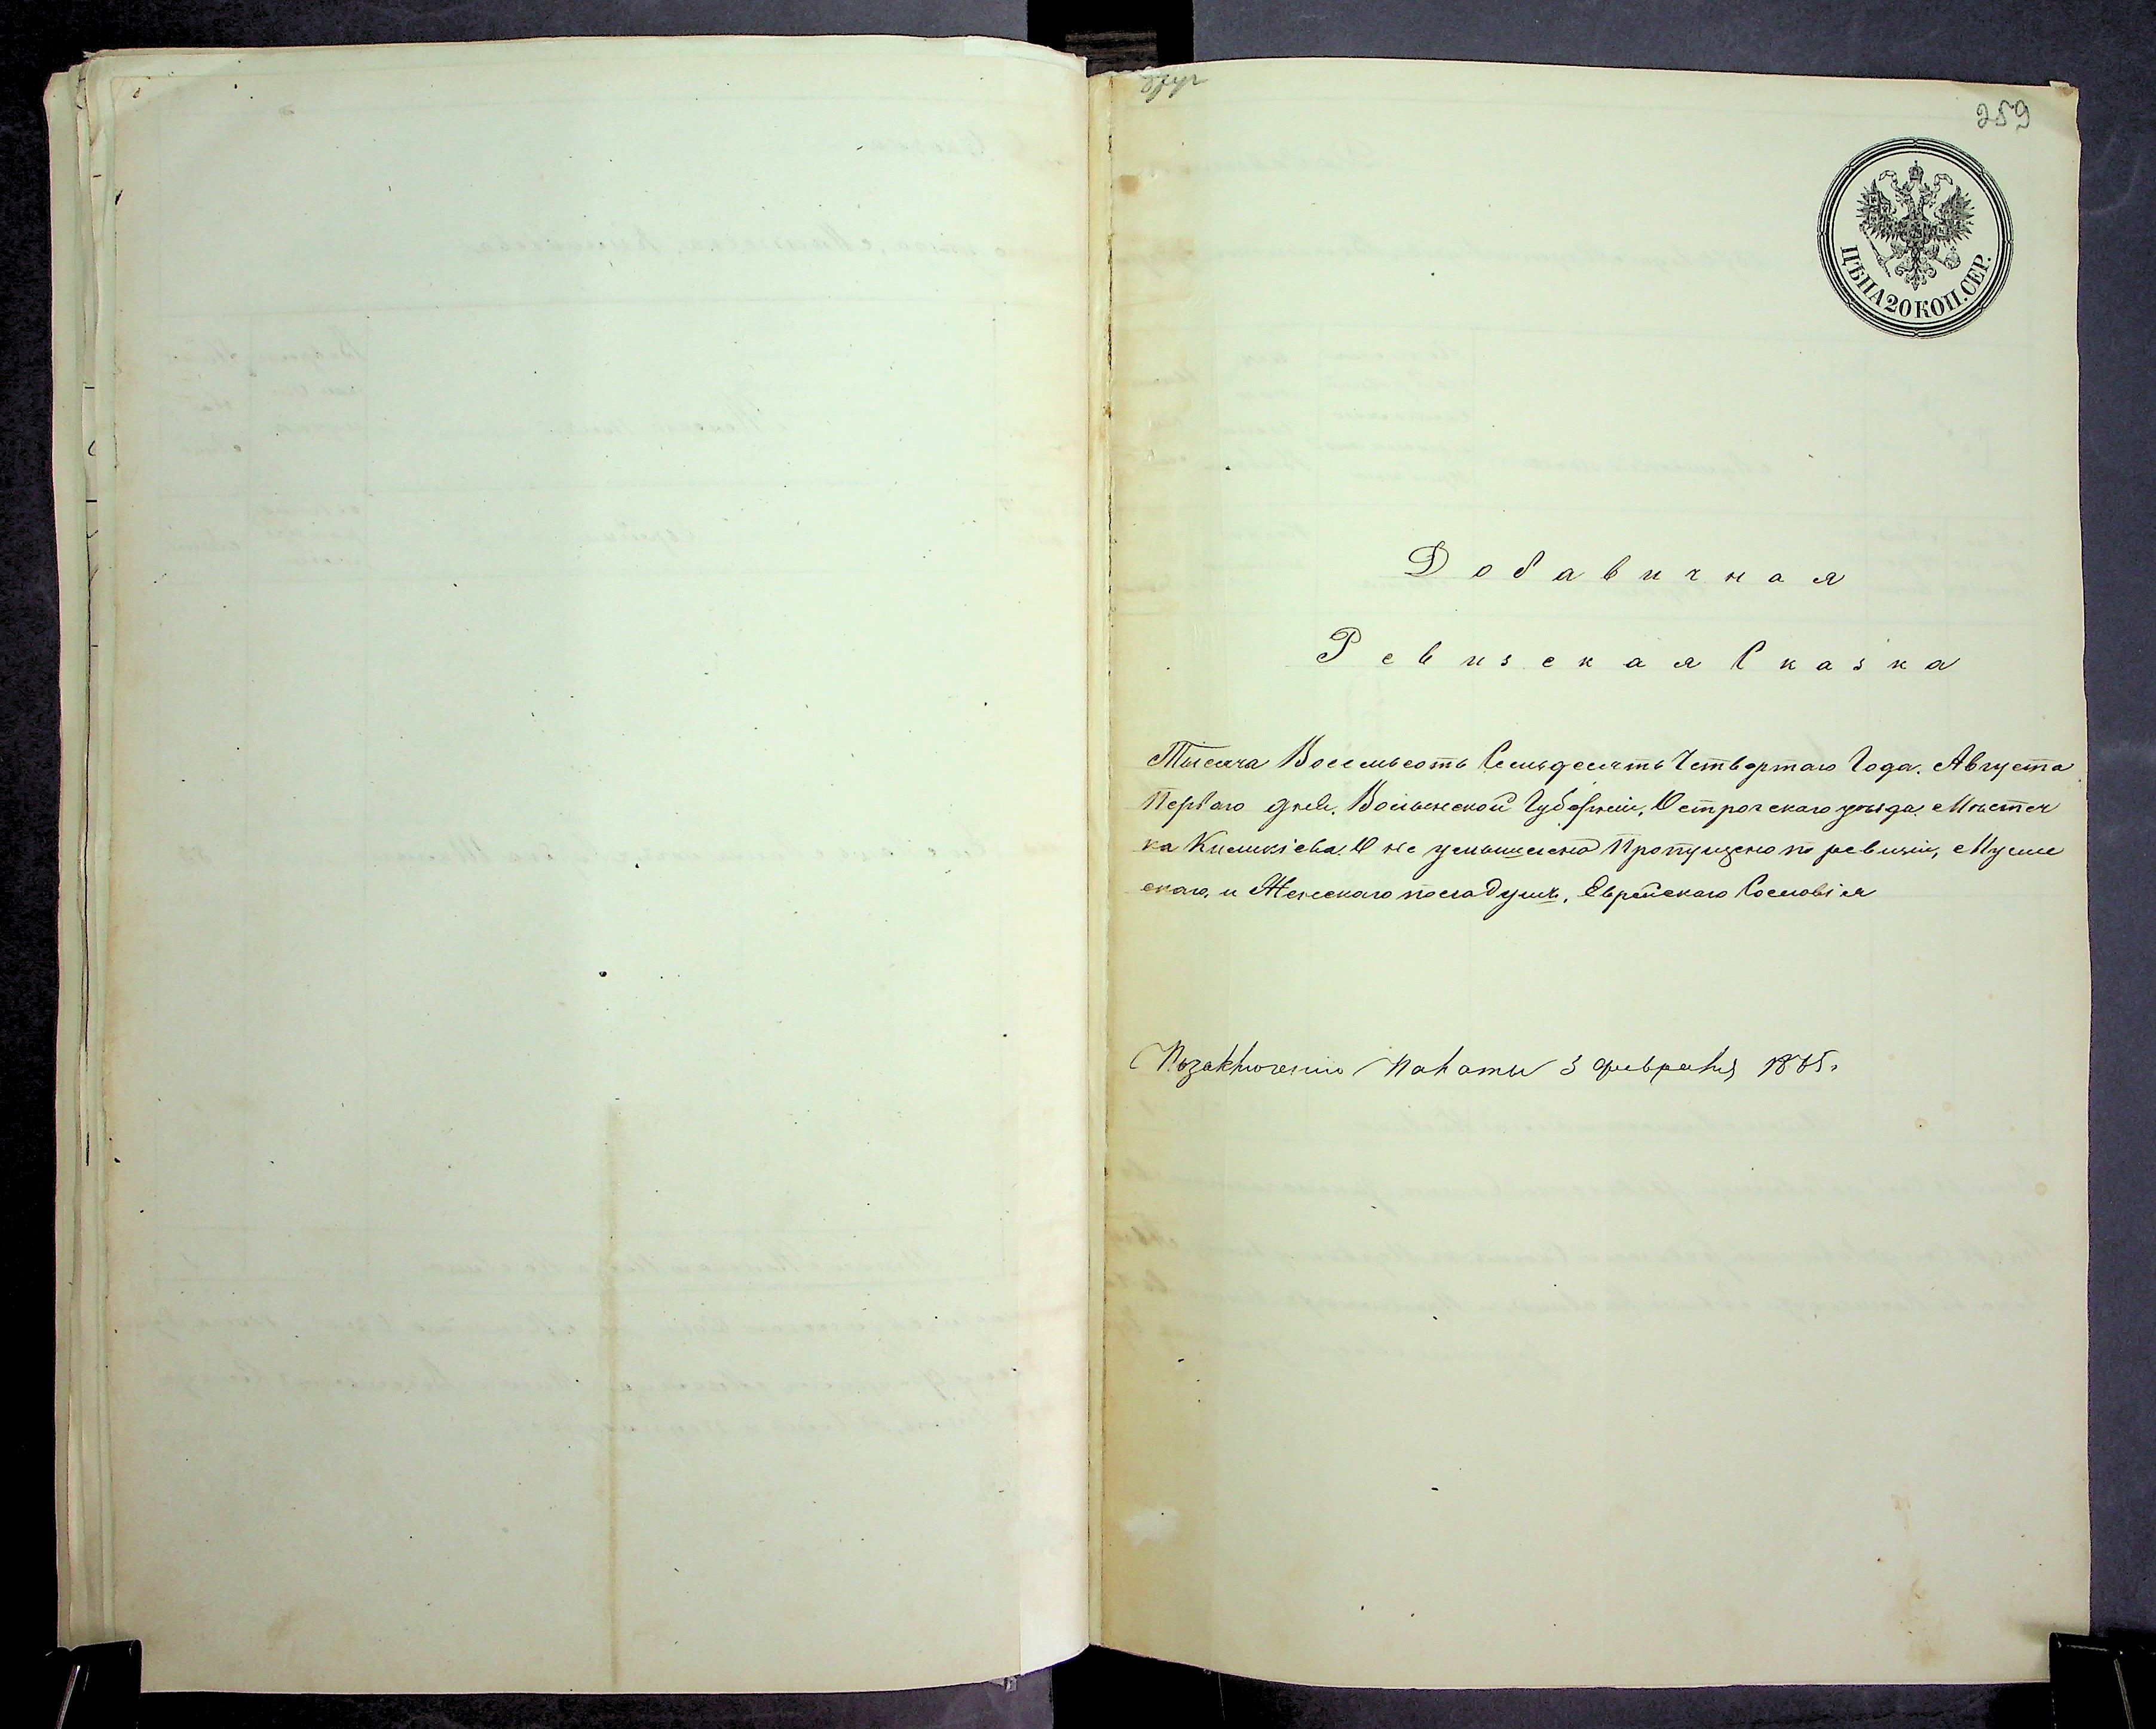 259
ЦѢНА 20 КОП. СЕР.
Добавичная
Ревизская Сказка
Тысяча Восемьсотъ Семьдесятъ Четвертаго Года. Августа
Перваго дня. Волынской Губерніи, Острогскаго уѣзда. Мѣстеч
ка Киликіева. О не умышлено Пропущено по ревизіи, Мужс
скаго, и Женскаго пола Душъ, Еврейскаго Сословія
По заключенію Палаты 3 февраля 1875.